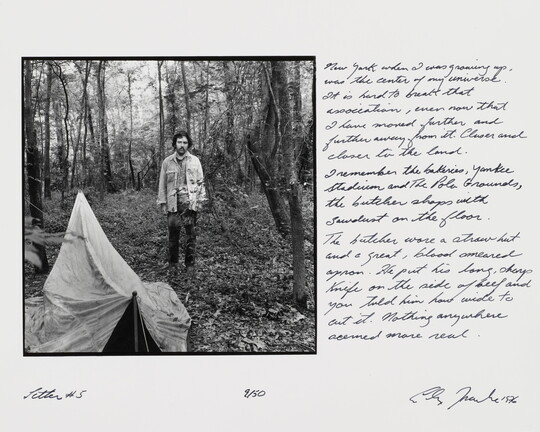 New York when I was growing up,
was the center of my universe.
It is hard to break that
association, even now that
I have moved further and
further away from it. Closer and
closer to the land.
I remember the bakeries, Yankee
Stadium and The Polo Grounds,
the butcher shops with
sawdust on the floor.
The butcher wore a straw hat
and a great, blood smeared
apron. He put his long, sharp
knife on the side of beef and
you told him how wide to
cut it. Nothing anywhere
seemed more real.
Letter #5
9/50